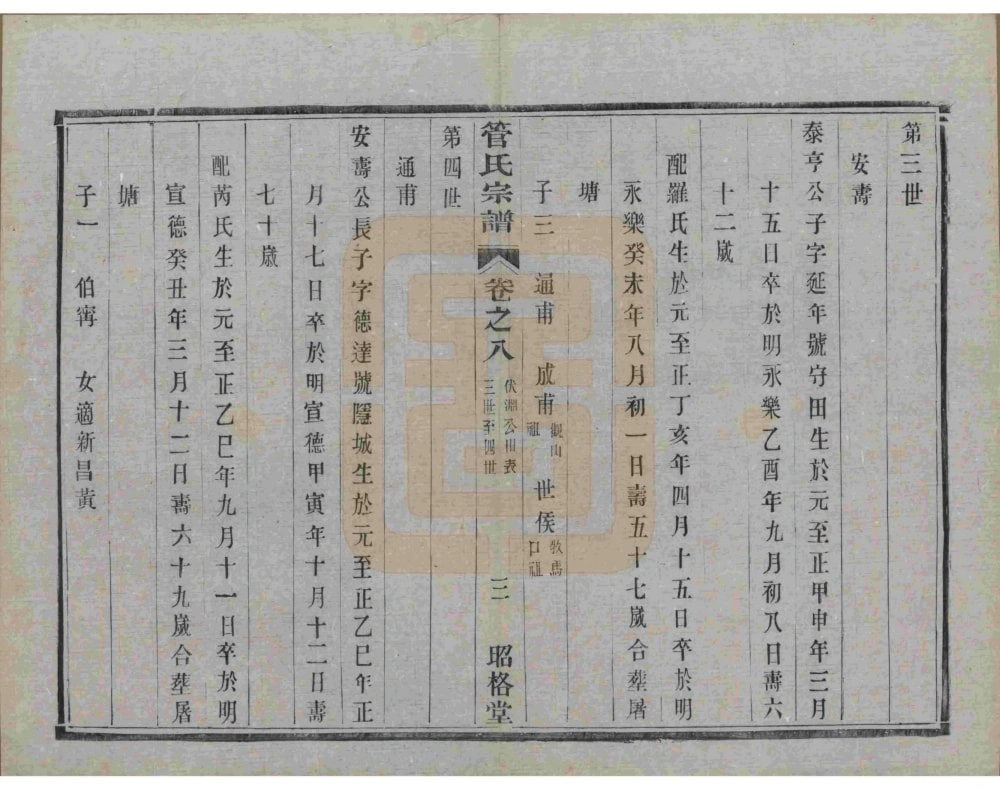 第三世
安壽
泰亨公子字延年號守田生於元至正甲申年三月
十五日卒於明永樂乙酉年九月初八日壽六
十二歲
配羅氏生於元至正丁亥年四月十五日卒於明
永樂癸未年八月初一日壽五十七歲合塟屠
塘
子三　通甫　成甫觀山祖　世侯牧馬口祖
管氏宗譜　卷之八　伏淵公世表三世至四世　三　昭格堂
第四世
通甫
安壽公長子字德達號隱城生於元至正乙巳年正
月十七日卒於明宣德甲寅年十月十二日壽
七十歲
配芮氏生於元至正乙巳年九月十一日卒於明
宣德癸丑年三月十二日壽六十九歲合塟屠
塘
子一　伯寗　女適新昌黃